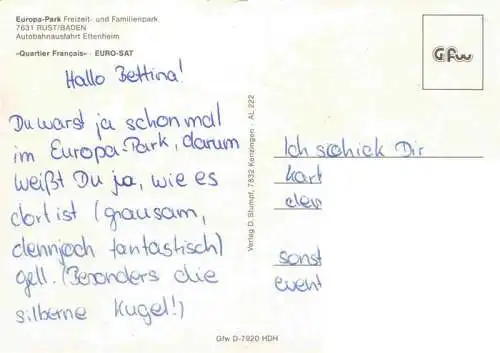 Europa-Park Freizeit- und Familienpark
7631 RUST/BADEN
Autobahnausfahrt Ettenheim
»Quartier Français« EURO-SAT
Gfw
Hallo Bettina!
Du warst ja schon mal
im Europa-Park, darum
weißt Du ja, wie es
dort ist (grausam,
dennjoch fantastisch)
gell. (Besonders die
silberne Kugel!)
Verlag D. Stumpf, 7832 Kenzingen · AL 222
Ich schick Dir
kart
der
sonst
event
Gfw D-7920 HDH